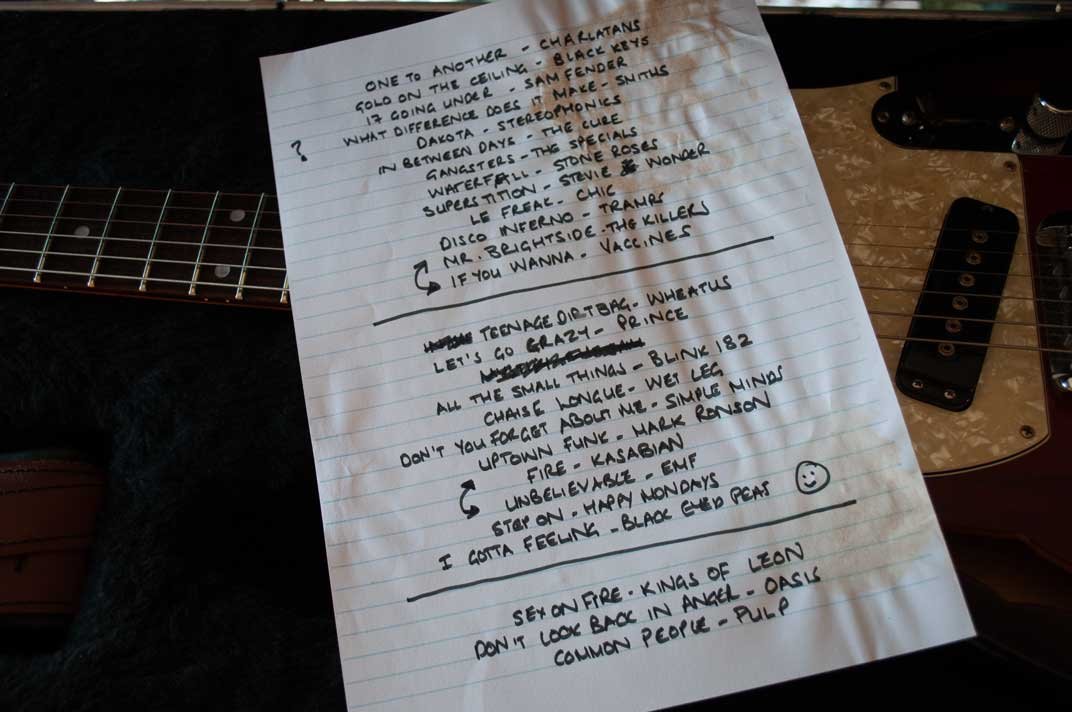 ONE TO ANOTHER - CHARLATANS
GOLD ON THE CEILING - BLACK KEYS
17 GOING UNDER - SAM FENDER
? WHAT DIFFERENCE DOES IT MAKE - SMITHS
DAKOTA - STEREOPHONICS
IN BETWEEN DAYS - THE CURE
GANGSTERS - THE SPECIALS
WATERFALL - STONE ROSES
SUPERSTITION - STEVIE WONDER
LE FREAK - CHIC
DISCO INFERNO - TRAMPS
MR. BRIGHTSIDE - THE KILLERS
IF YOU WANNA - VACCINES
TEENAGE DIRTBAG - WHEATUS
LET'S GO CRAZY - PRINCE
ALL THE SMALL THINGS - BLINK 182
CHAISE LONGUE - WET LEG
DON'T YOU FORGET ABOUT ME - SIMPLE MINDS
UPTOWN FUNK - MARK RONSON
FIRE - KASABIAN
UNBELIEVABLE - EMF
STEP ON - HAPPY MONDAYS
I GOTTA FEELING - BLACK EYED PEAS
SEX ON FIRE - KINGS OF LEON
DON'T LOOK BACK IN ANGER - OASIS
COMMON PEOPLE - PULP